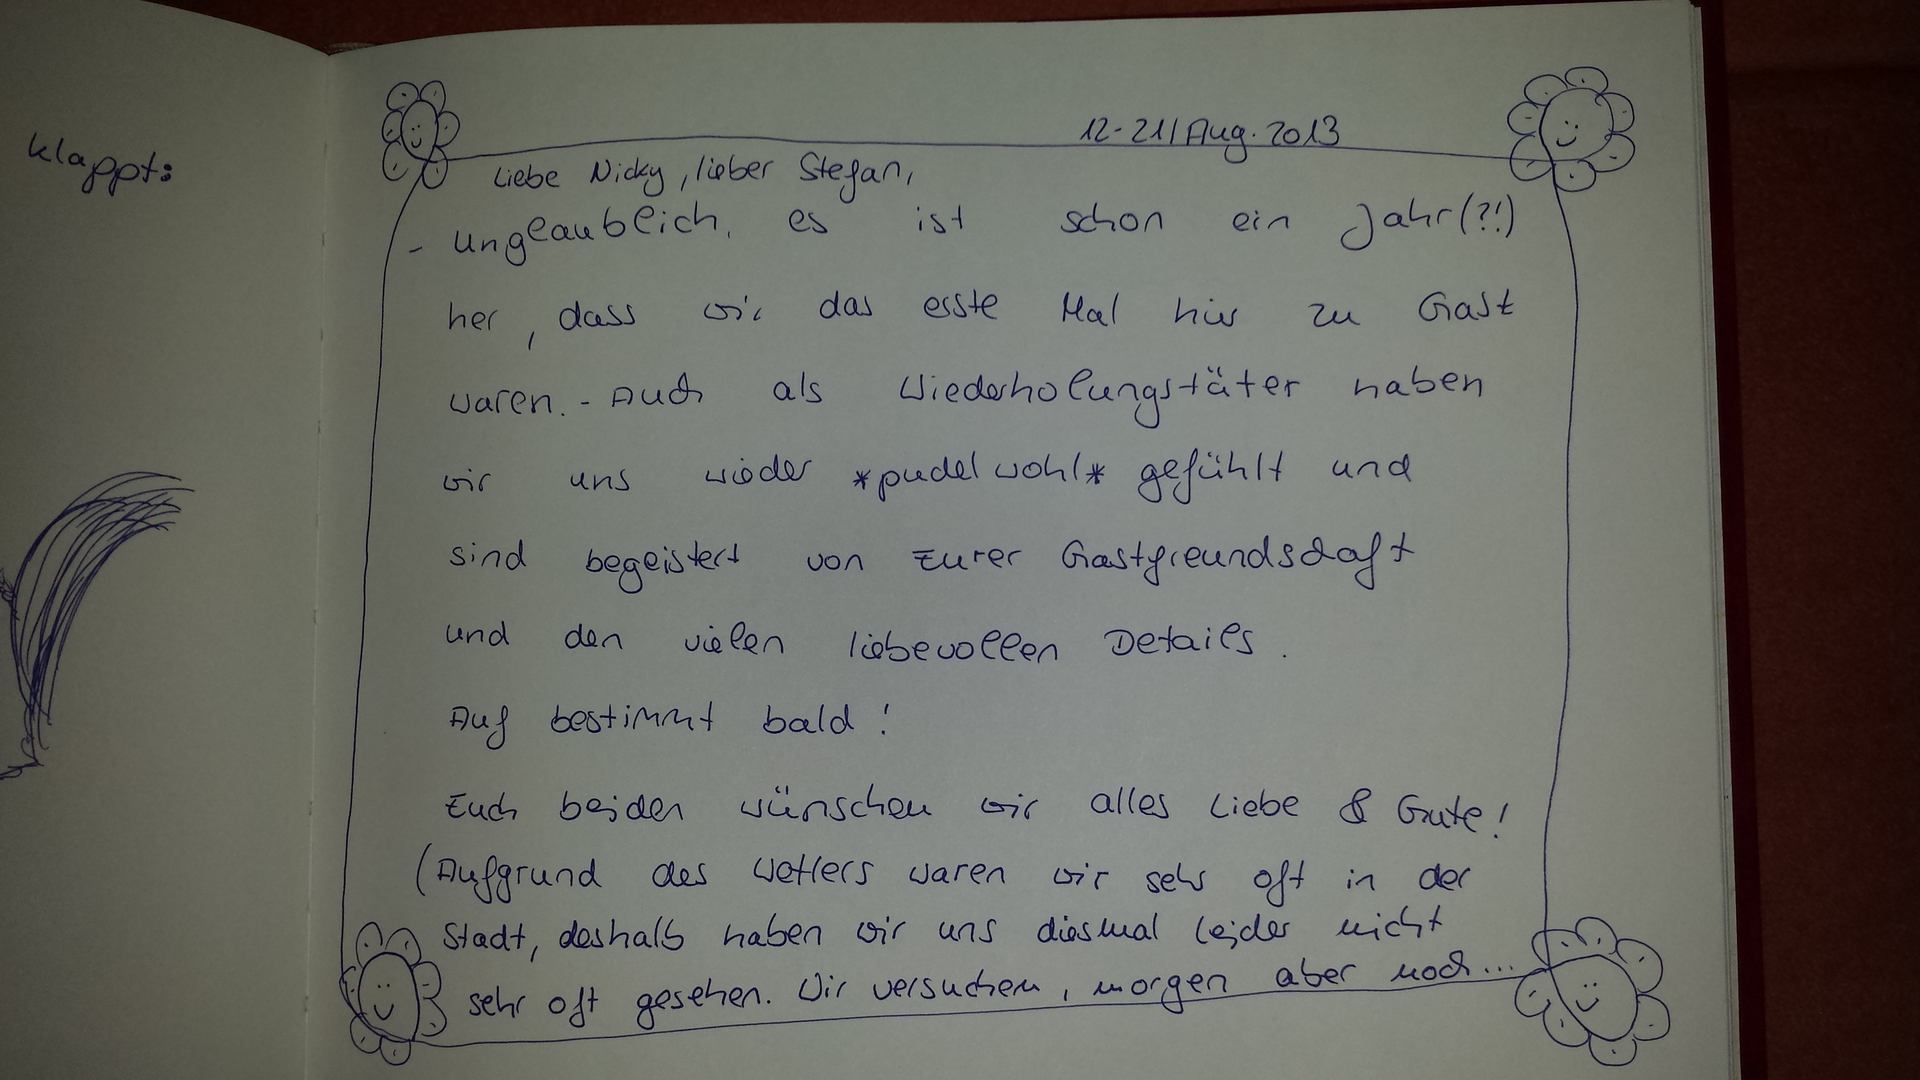 klappt:
12-21/Aug. 2013
Liebe Nicky, lieber Stefan,
- unglaublich, es ist schon ein Jahr(?!)
her, dass wir das erste Mal hier zu Gast
waren. - Auch als Wiederholungstäter haben
wir uns wieder *pudelwohl* gefühlt und
sind begeistert von Eurer Gastfreundschaft
und den vielen liebevollen Details.
Auf bestimmt bald!
Euch beiden wünschen wir alles Liebe & Gute!
(Aufgrund des Wetters waren wir sehr oft in der
Stadt, deshalb haben wir uns diesmal leider nicht
sehr oft gesehen. Wir versuchen, morgen aber noch...